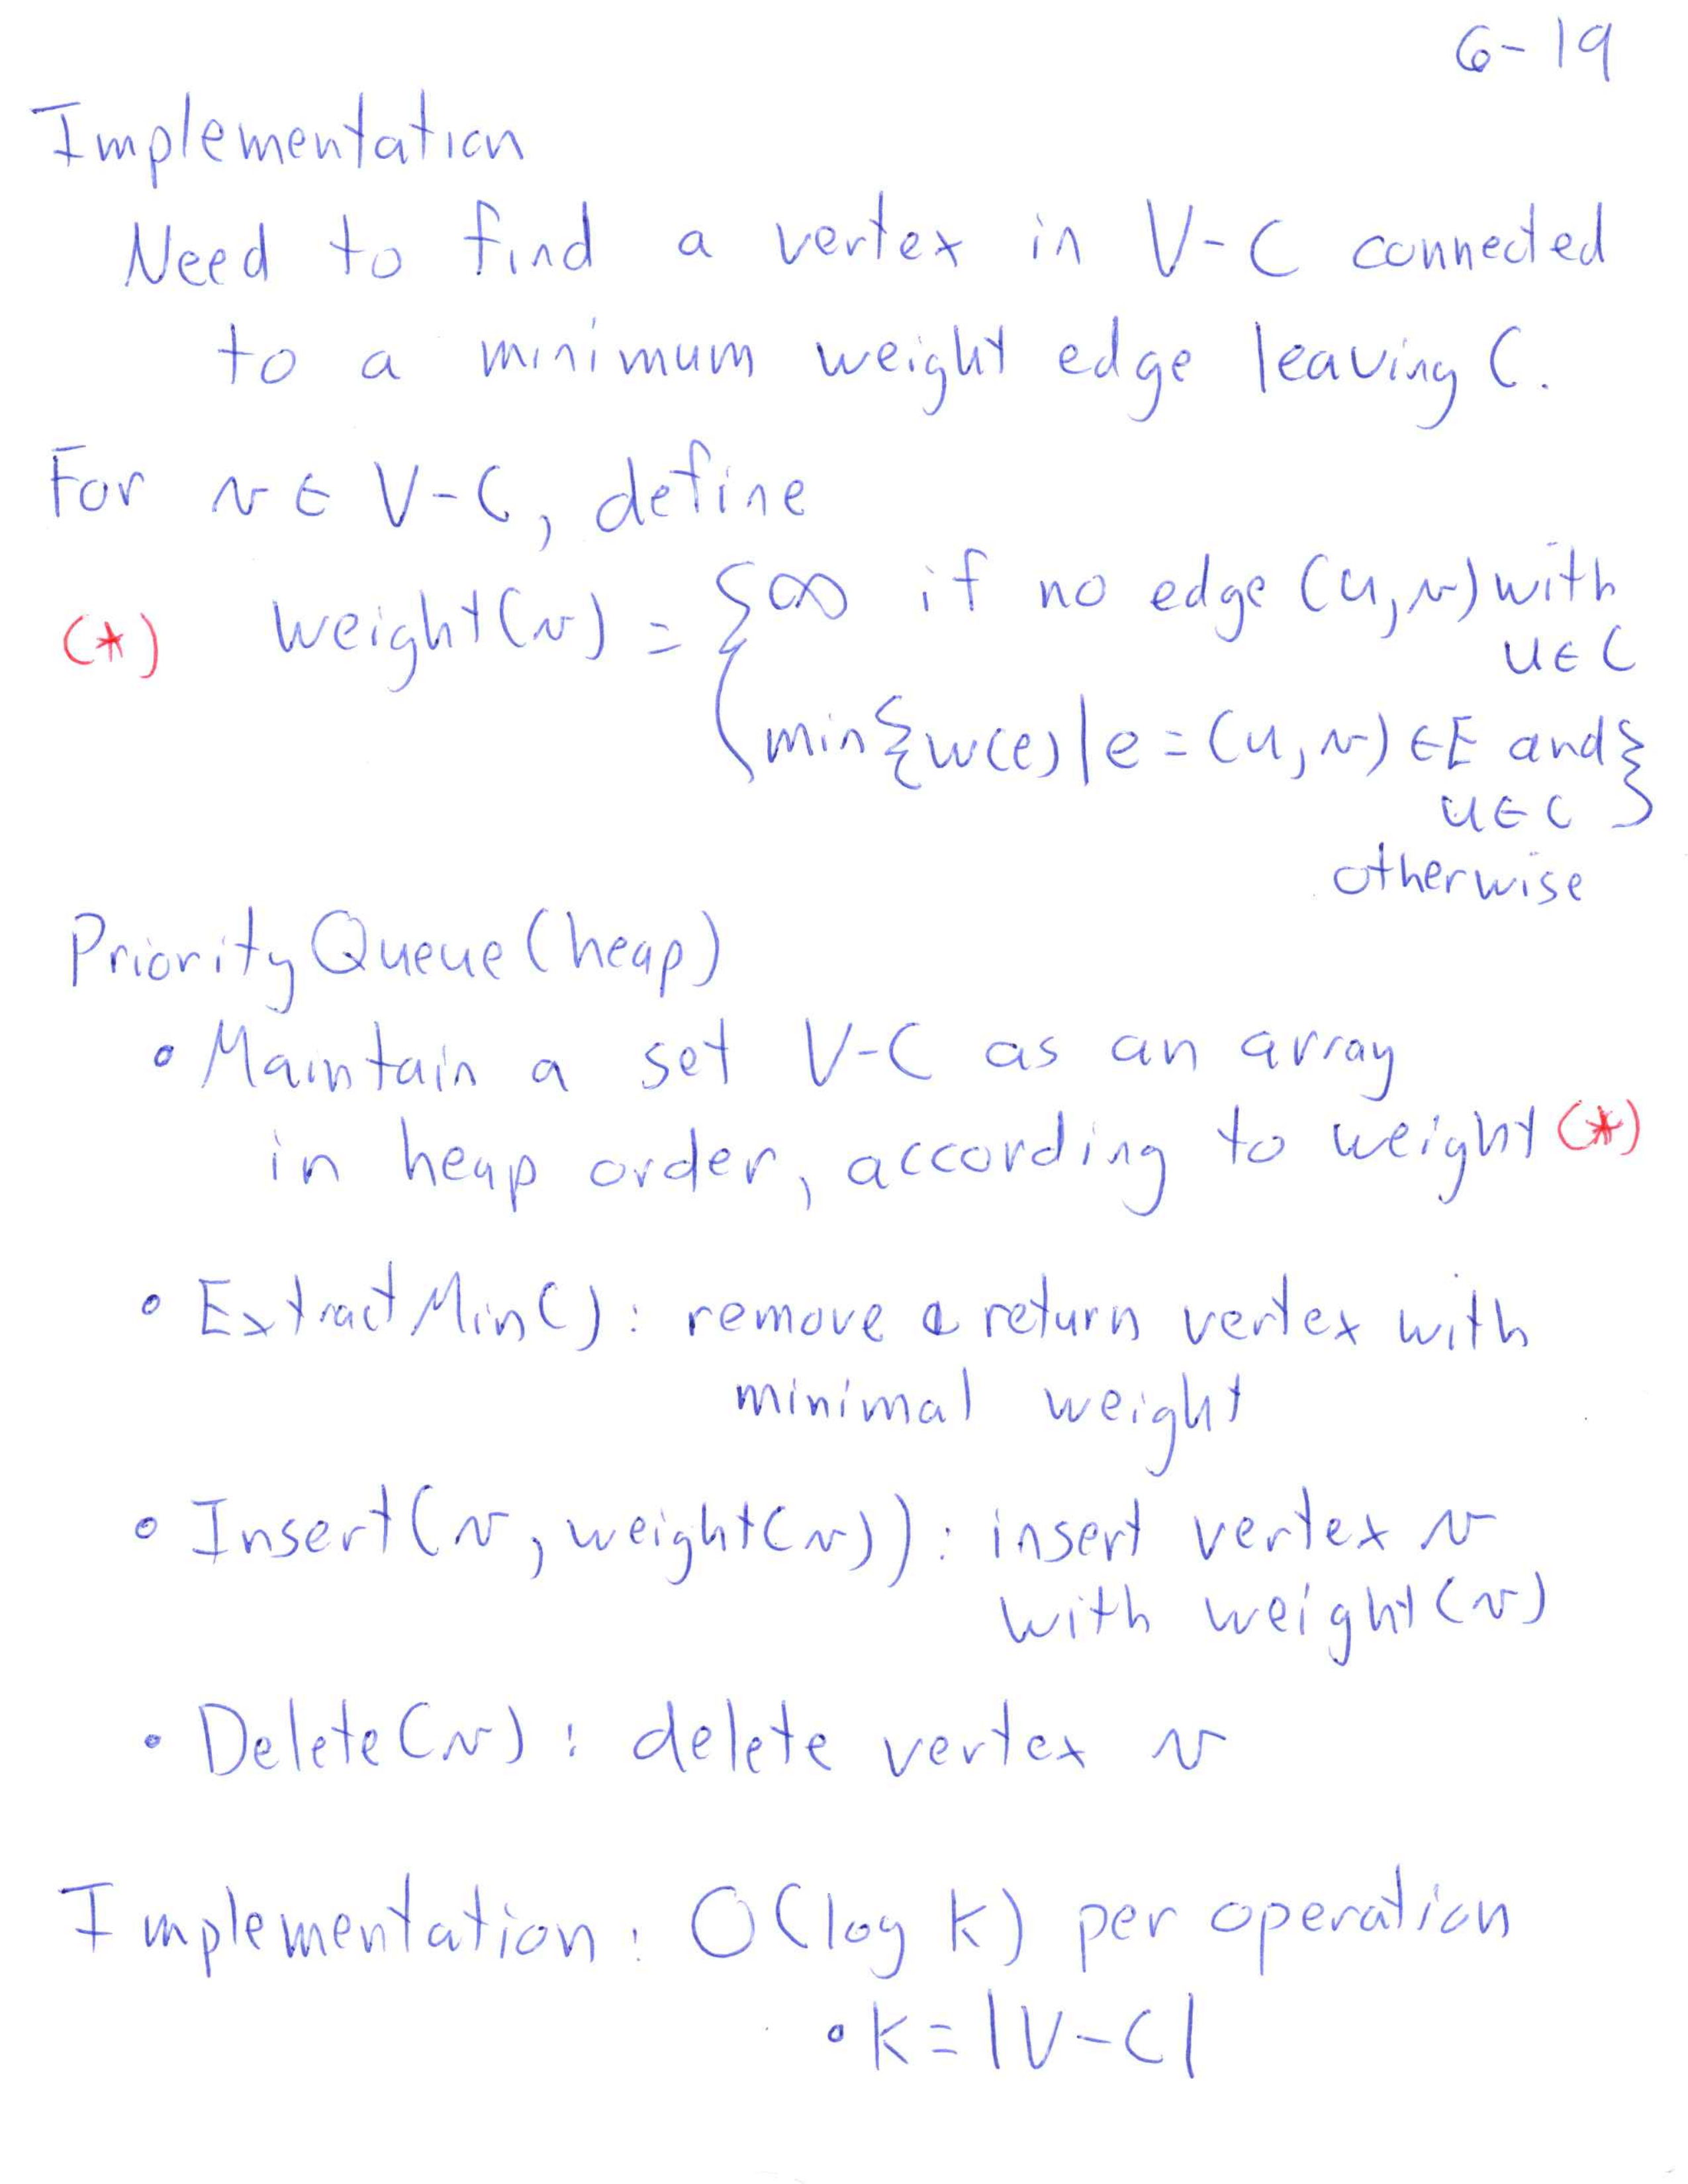 6-19
Implementation
Need to find a vertex in V-C connected
to a minimum weight edge leaving C.
For v ∈ V-C, define
(*) weight(v) = { ∞ if no edge (u,v) with
u ∈ C
min{w(e) | e = (u,v) ∈ E and }
u ∈ C
otherwise
Priority Queue (heap)
• Maintain a set V-C as an array
in heap order, according to weight (*)
• ExtractMin(): remove & return vertex with
minimal weight
• Insert(v, weight(v)): insert vertex v
with weight(v)
• Delete(v): delete vertex v
Implementation: O(log k) per operation
• k = |V-C|